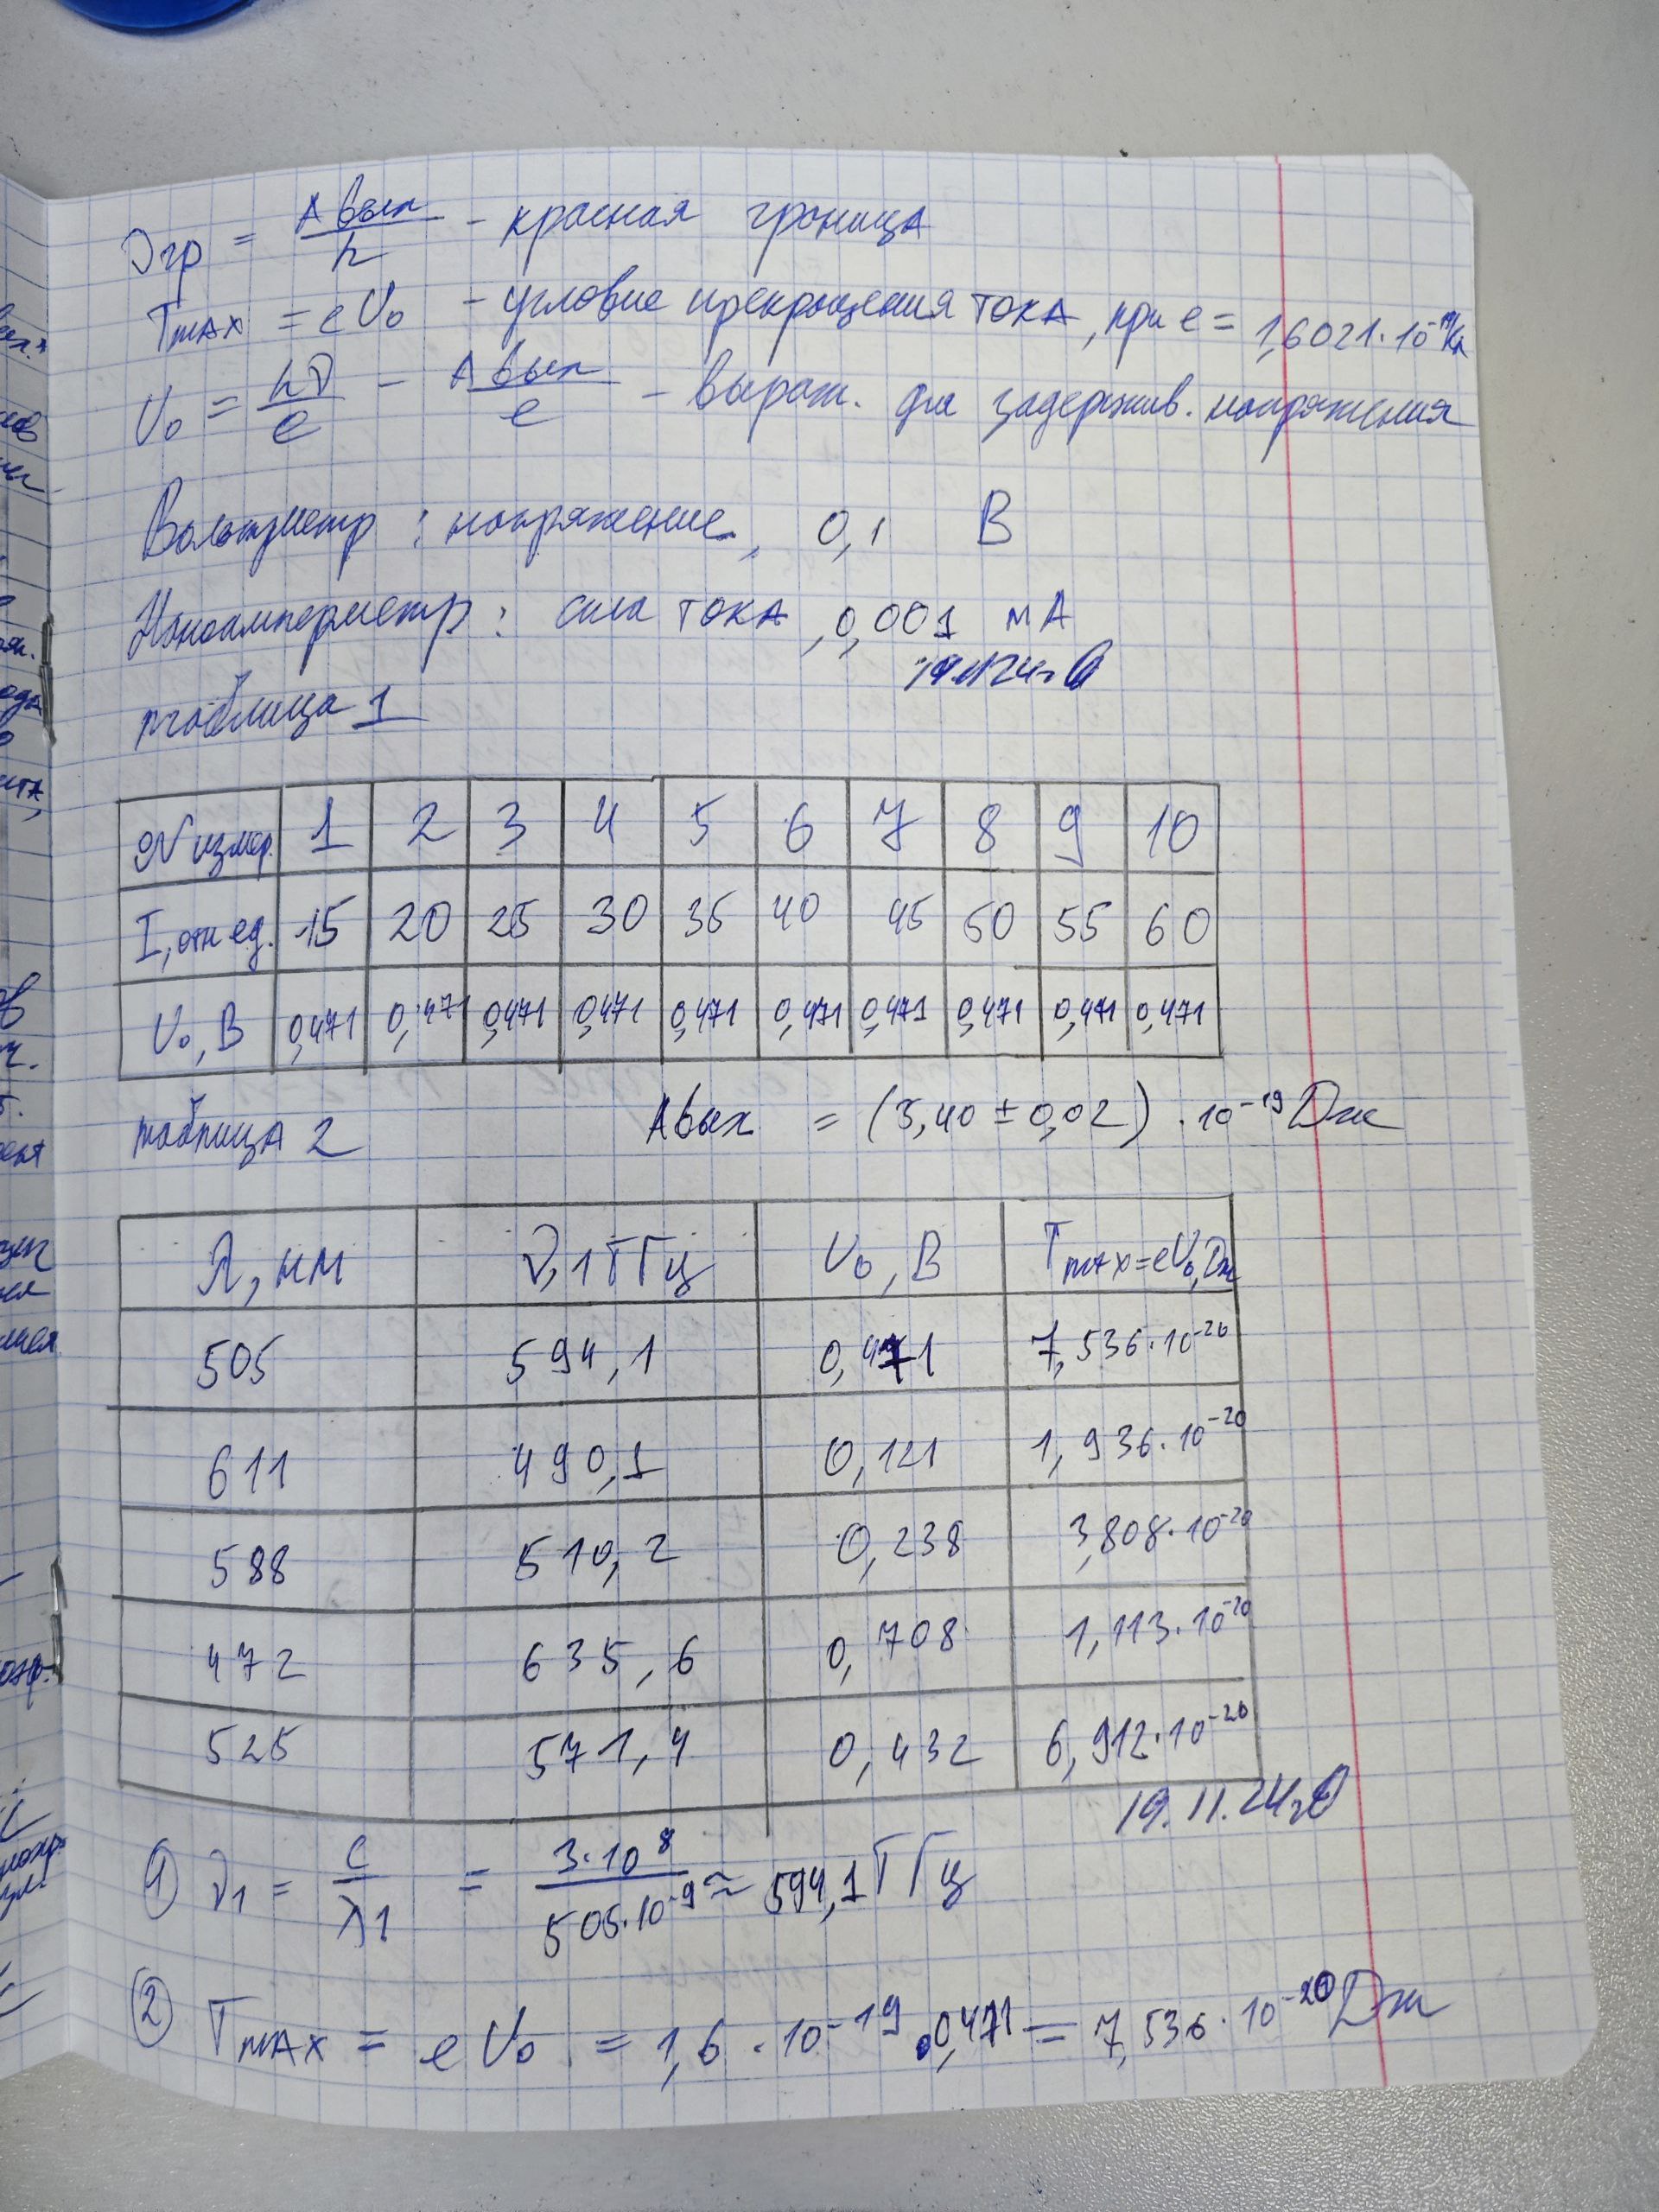 νгр = Aвых/h - красная граница
Tmax = eU₀ - условие прекращения тока, при e = 1,6021·10⁻¹⁹Кл
U₀ = hν/e - Aвых/e - выраж. для задержив. напряжения
Вольтметр : напряжение, 0,1 В
Наноамперметр : сила тока, 0,001 мА
таблица 1
№ измер. 1 2 3 4 5 6 7 8 9 10
I, отн ед. 15 20 25 30 35 40 45 50 55 60
U₀, В 0,471 0,471 0,471 0,471 0,471 0,471 0,471 0,471 0,471 0,471
таблица 2 Aвых = (3,40 ± 0,02) · 10⁻¹⁹ Дж
λ, нм ν, 1 ТГц U₀, В Tmax=eU₀, Дж
505 594,1 0,471 7,536·10⁻²⁰
611 490,1 0,121 1,936·10⁻²⁰
588 510,2 0,238 3,808·10⁻²⁰
472 635,6 0,708 1,113·10⁻²⁰
525 571,4 0,432 6,912·10⁻²⁰
19.11.24г
① ν₁ = c/λ₁ = 3·10⁸/505·10⁻⁹ ≈ 594,1 ТГц
② Tmax = eU₀ = 1,6 · 10⁻¹⁹ · 0,471 = 7,536 · 10⁻²⁰ Дж